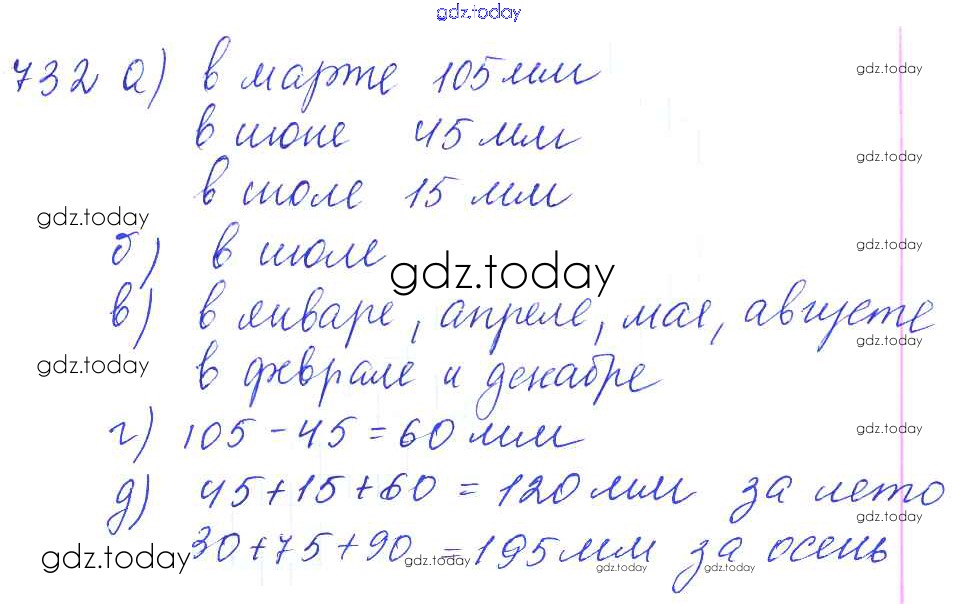 gdz.today
732 а) в марте 105 мм
gdz.today
в июне 45 мм
gdz.today
в июле 15 мм
gdz.today
б) в июле
gdz.today
gdz.today
в) в январе, апреле, мае, августе
gdz.today
в феврале и декабре
gdz.today
г) 105 - 45 = 60 мм
gdz.today
д) 45 + 15 + 60 = 120 мм за лето
gdz.today
30 + 75 + 90 = 195 мм за осень
gdz.today
gdz.today
gdz.today
gdz.today